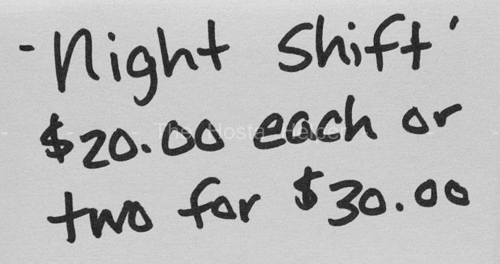 -Night Shift'
$20.00 each or
The Hosta Helper
two for $30.00